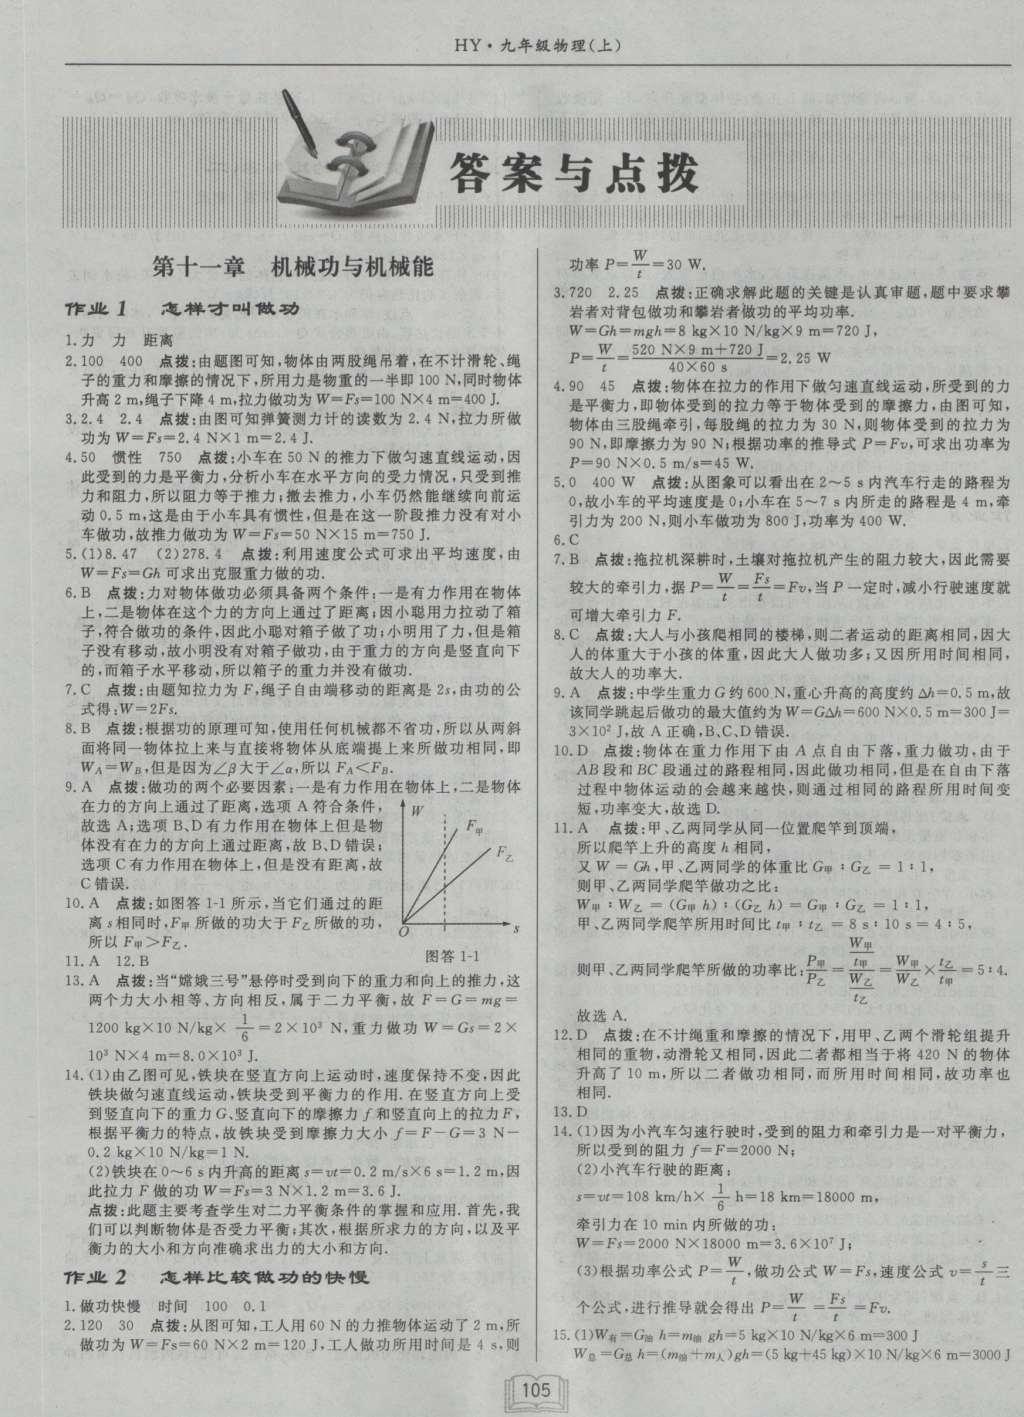 HY·九年级物理(上)
答案与点拨
第十一章 机械功与机械能
作业1 怎样才叫做功
1.力 力 距离
2.100 400 点拨:由题图可知,物体由两股绳吊着,在不计滑轮、绳
子的重力和摩擦的情况下,所用力是物重的一半即100 N,同时物体
升高2 m,绳子下降4 m,拉力做功为W=Fs=100 N×4 m=400 J.
3.2.4 2.4 点拨:由图可知弹簧测力计的读数为2.4 N,拉力所做
功为W=Fs=2.4 N×1 m=2.4 J.
4.50 惯性 750 点拨:小车在50 N的推力下做匀速直线运动,因
此受到的力是平衡力,分析小车在水平方向的受力情况,只受到推
力和阻力,所以阻力等于推力;撤去推力,小车仍然能继续向前运
动0.5 m,这是由于小车具有惯性,但是在这一阶段推力没有对小
车做功,故推力做功为W=Fs=50 N×15 m=750 J.
5.(1)8.47 (2)278.4 点拨:利用速度公式可求出平均速度,由
W=Fs=Gh可求出克服重力做的功.
6.B 点拨:力对物体做功必须具备两个条件:一是有力作用在物体
上,二是物体在这个力的方向上通过了距离;因小聪用力拉动了箱
子,符合做功的条件,因此小聪对箱子做了功;小明用了力,但是箱
子没有移动,故小明没有对箱子做功,由于重力的方向是竖直向下
的,而箱子水平移动,所以箱子的重力并没有做功.
7.C 点拨:由题知拉力为F,绳子自由端移动的距离是2s,由功的公
式得:W=2Fs.
8.B 点拨:根据功的原理可知,使用任何机械都不省功,所以从两斜
面将同一物体拉上来与直接将物体从底端提上来所做功相同,即
WA=WB,但是因为∠β大于∠α,所以FA<FB.
9.A 点拨:做功的两个必要因素:一是有力作用在物体上,二是物体
在力的方向上通过了距离,选项A符合条件,
故选A;选项B、D有力作用在物体上但是物
体没有在力的方向上通过距离,故B、D错误;
选项C有力作用在物体上,但是没有距离,故
C错误.
10.A 点拨:如图答1-1所示,当它们通过的距
离s相同时,F甲所做的功大于F乙所做的功,
所以F甲>F乙.
W
F甲
F乙
O
s
图答1-1
11.A 12.B
13.A 点拨:当“嫦娥三号”悬停时受到向下的重力和向上的推力,这
两个力大小相等、方向相反,属于二力平衡,故F=G=mg=
1200 kg×10 N/kg×1/6=2×10³ N,重力做功W=Gs=2×
10³ N×4 m=8.0×10³ J.
14.(1)由乙图可见,铁块在竖直方向上运动时,速度保持不变,因此
铁块做匀速直线运动,铁块受到平衡力的作用.在竖直方向上受
到竖直向下的重力G、竖直向下的摩擦力f和竖直向上的拉力F,
根据平衡力的特点,故铁块受到摩擦力大小f=F-G=3 N-
0.2 kg×10 N/kg=1 N.
(2)铁块在0~6 s内升高的距离s=vt=0.2 m/s×6 s=1.2 m,因
此拉力F做的功W=Fs=3 N×1.2 m=3.6 J.
点拨:此题主要考查学生对二力平衡条件的掌握和应用.首先,我
们可以判断物体是否受力平衡;其次,根据所求力的方向,以及平
衡力的大小和方向准确求出力的大小和方向.
作业2 怎样比较做功的快慢
1.做功快慢 时间 100 0.1
2.120 30 点拨:从图可知,工人用60 N的力推物体运动了2 m,所
做功为W=Fs=60 N×2 m=120 J,工人做功所用时间是4 s,则
功率P=W/t=30 W.
3.720 2.25 点拨:正确求解此题的关键是认真审题,题中要求攀
岩者对背包做功和攀岩者做功的平均功率.
W=Gh=mgh=8 kg×10 N/kg×9 m=720 J,
P=W/t=(520 N×9 m+720 J)/(40×60 s)=2.25 W
4.90 45 点拨:物体在拉力的作用下做匀速直线运动,所受到的力
是平衡力,即物体受到的拉力等于物体受到的摩擦力,由图可知,
物体由三股绳牵引,每股绳的拉力为30 N,则物体受到的拉力为
90 N,即摩擦力为90 N;根据功率的推导式P=Fv,可求出功率为
P=90 N×0.5 m/s=45 W.
5.0 400 W 点拨:从图象可以看出在2~5 s内汽车行走的路程为
0,故小车的平均速度是0;小车在5~7 s内所走的路程是4 m,牵
引力为200 N,则小车做功为800 J,功率为400 W.
6.C
7.B 点拨:拖拉机深耕时,土壤对拖拉机产生的阻力较大,因此需要
较大的牵引力,据P=W/t=Fs/t=Fv,当P一定时,减小行驶速度就
可增大牵引力F.
8.C 点拨:大人与小孩爬相同的楼梯,则二者运动的距离相同,因大
人的体重大于小孩的体重,因此大人做功多;又因所用时间相同,
故大人的功率大.
9.A 点拨:中学生重力G约600 N,重心升高的高度约Δh=0.5 m,故
该同学跳起后做功的最大值约为W=GΔh=600 N×0.5 m=300 J=
3×10² J,故A正确,B、C、D错误.
10.D 点拨:物体在重力作用下由A点自由下落,重力做功,由于
AB段和BC段通过的路程相同,因此做功相同,但是在自由下落
过程中物体运动的会越来越快,则通过相同的路程所用时间变
短,功率变大,故选D.
11.A 点拨:甲、乙两同学从同一位置爬竿到顶端,
所以爬竿上升的高度h相同,
又W=Gh,甲、乙两同学的体重比G甲∶G乙=1∶1,
则甲、乙两同学爬竿做功之比:
W甲∶W乙=(G甲h)∶(G乙h)=G甲∶G乙=1∶1,
甲、乙两同学爬竿所用时间比t甲∶t乙=8 s∶10 s=4∶5,
则甲、乙两同学爬竿所做的功率比:P甲/P乙=(W甲/t甲)/(W乙/t乙)=W甲/W乙×t乙/t甲=5∶4.
故选A.
12.D 点拨:在不计绳重和摩擦的情况下,用甲、乙两个滑轮组提升
相同的重物,动滑轮又相同,因此二者都相当于将420 N的物体
升高了10 m,所以二者做功相同,而所用时间相同,故功率也
相同.
13.D
14.(1)因为小汽车匀速行驶时,受到的阻力和牵引力是一对平衡力,
所以受到的阻力f=F=2000 N;
(2)小汽车行驶的距离:
s=vt=108 km/h×1/6 h=18 km=18000 m,
牵引力在10 min内所做的功:
W=Fs=2000 N×18000 m=3.6×10⁷ J;
(3)根据功率公式P=W/t,做功公式W=Fs,速度公式v=s/t三
个公式,进行推导就会得出P=W/t=Fs/t=Fv.
15.(1)W有=G油h=m油gh=5 kg×10 N/kg×6 m=300 J
W总=G总h=(m油+m人)gh=(5 kg+45 kg)×10 N/kg×6 m=3000 J
105